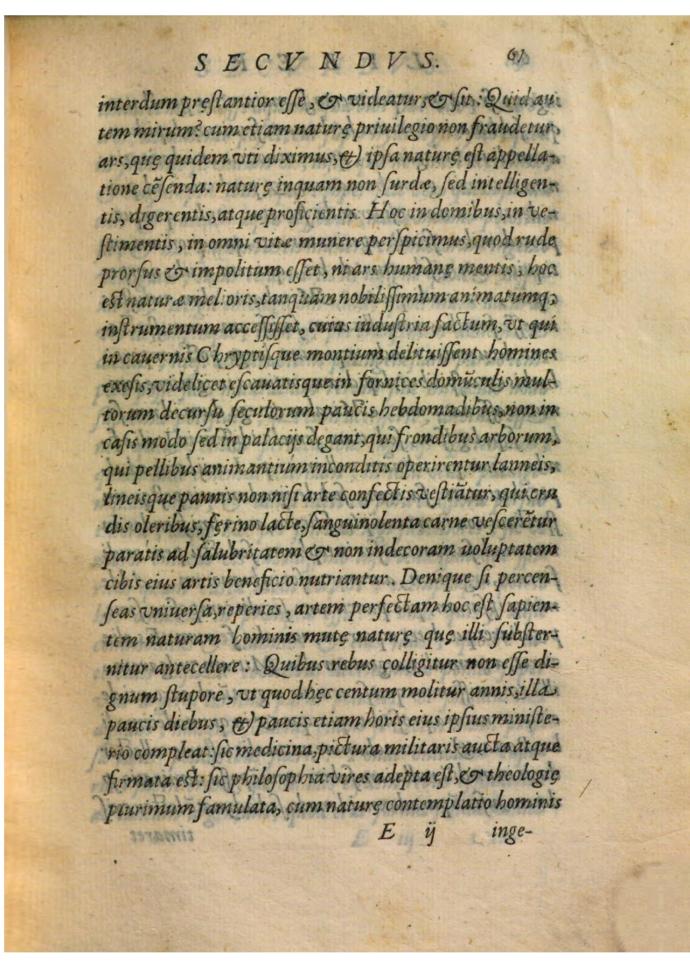 SECVNDVS. 61
interdum pręstantior esse, & videatur, & sit: Quid au-
tem mirum? cum etiam naturę priuilegio non fraudetur,
ars, quę quidem vti diximus, & ipsa naturę est appella-
tione cẽsenda: naturę inquam non surdæ, sed intelligen-
tis, digerentis, atque proficientis. Hoc in domibus, in ve-
stimentis, in omni vitæ munere perspicimus, quod rude
prorsus & impolitum esset, ni ars humanę mentis, hoc
est naturæ melioris, tanquam nobilissimum animatumq;
instrumentum accessisset, cuius industria factum, vt qui
in cauernis Chryptisque montium delituissent homines
exesis, videlicet escauatisque in fornices domũculis mul-
torum decursu seculorum paucis hebdomadibus, non in
casis modo sed in palacijs degant, qui frondibus arborum,
qui pellibus animantium inconditis operirentur lanneis,
lineisque pannis non nisi arte confectis vestiãtur, qui cru
dis oleribus, fęrino lacte, sanguinolenta carne vescerẽtur
paratis ad salubritatem & non indecoram uoluptatem
cibis eius artis beneficio nutriantur. Denique si percen-
seas vniuersa, reperies, artem perfectam hoc est sapien-
tem naturam hominis mutę naturę quę illi subster-
nitur antecellere: Quibus rebus colligitur non esse di-
gnum stupore, vt quod hęc centum molitur annis, illa
paucis diebus, & paucis etiam horis eius ipsius ministe-
rio compleat: sic medicina, pictura militaris aucta atque
firmata est: sic philosophia vires adepta est, & theologię
plurimum famulata, cum naturę contemplatio hominis
E ij inge-